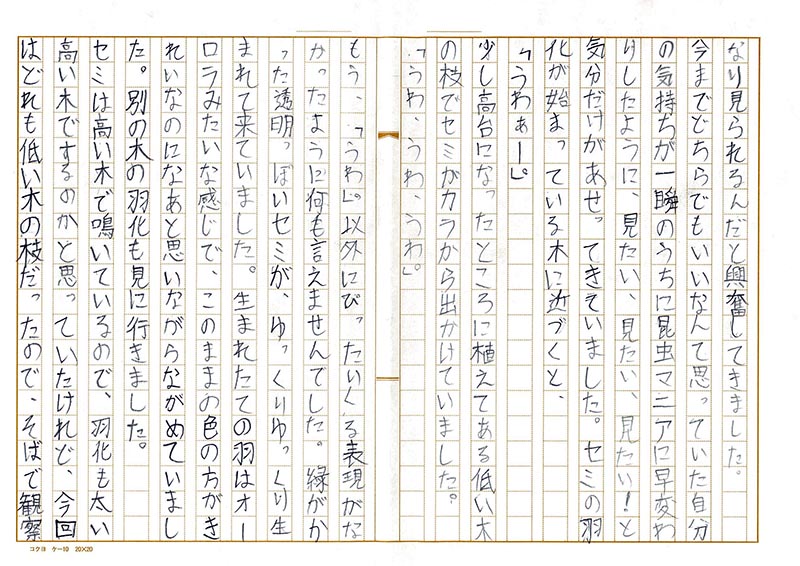 なり見られるんだと興奮してきました。
今までどちらでもいいなんて思っていた自分
の気持ちが一瞬のうちに昆虫マニアに早変わ
りしたように、見たい、見たい、見たい！と
気分だけがあせってきていました。セミの羽
化が始まっている木に近づくと、
「うわぁー」。
少し高台になったところに植えてある低い木
の枝でセミがカラから出かけていました。
「うわ、うわ、うわ」。
もう、「うわ」以外にぴったいくる表現がな
かったように何も言えませんでした。緑がか
った透明っぽいセミが、ゆっくりゆっくり生
まれて来ていました。生まれたての羽はオー
ロラみたいな感じで、このままの色の方がき
れいなのになあと思いながらながめていまし
た。別の木の羽化も見に行きました。
セミは高い木で鳴いているので、羽化も太い
高い木でするのかと思っていたけれど、今回
はどれも低い木の枝だったので、そばで観察
コクヨ ケー10 20×20